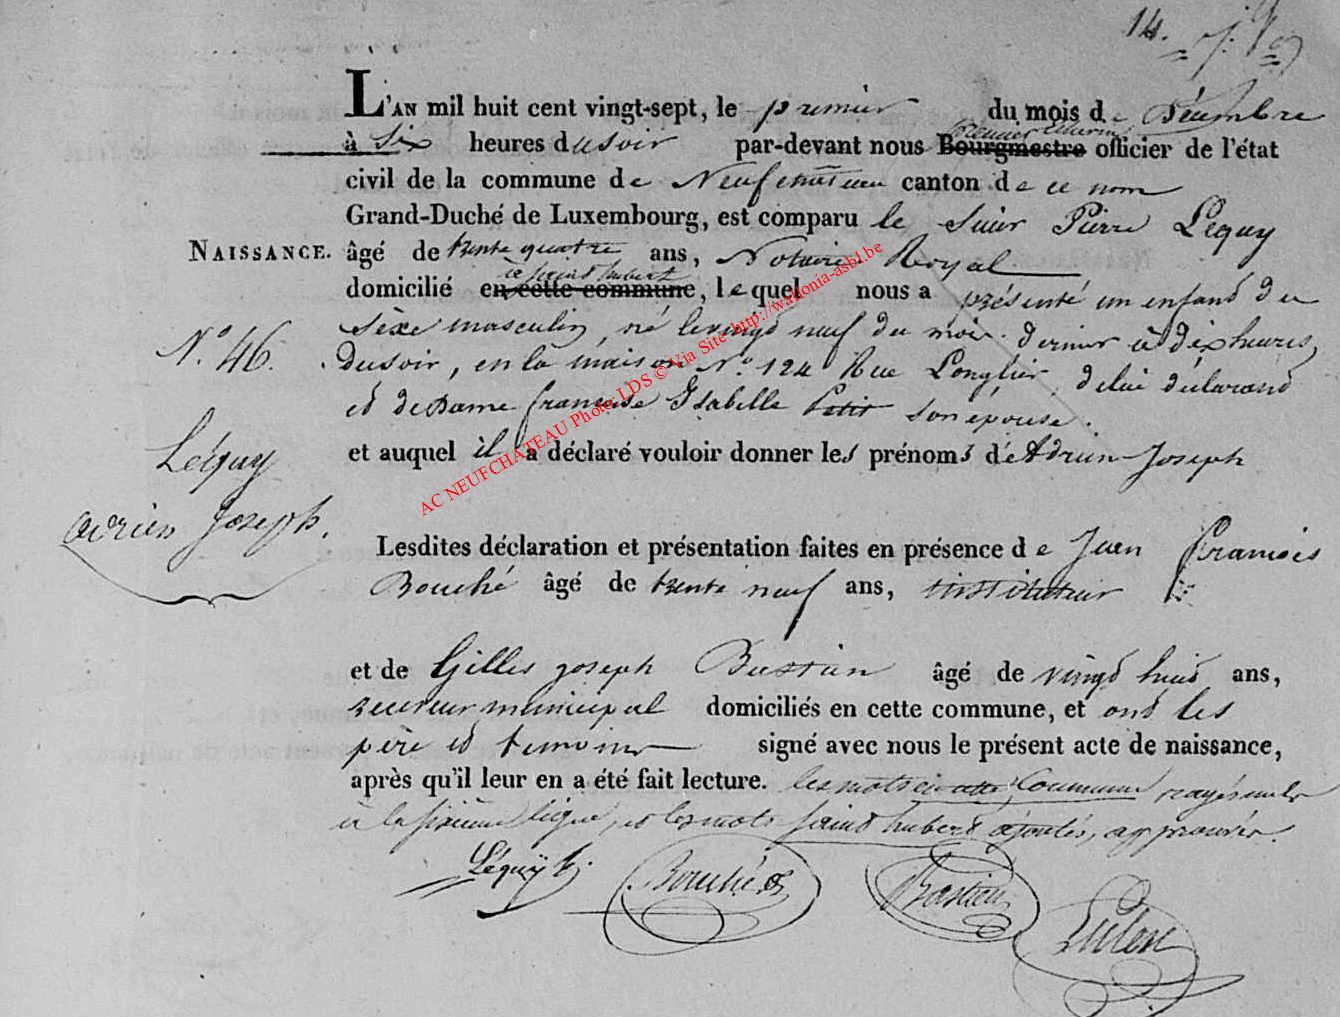 14.
L'AN mil huit cent vingt-sept, le premier du mois de Décembre
à six heures du soir par-devant nous premier Echevin Bourgmestre officier de l'état
civil de la commune de Neufchateau canton de ce nom
Grand-Duché de Luxembourg, est comparu le Sieur Pierre Lequy
NAISSANCE. âgé de trente quatre ans, Notaire Royal
domicilié à saint hubert en cette commune, lequel nous a présenté un enfand du
N.° 46. sèxe masculin, né le vingt neuf du mois dernier à dix heures
du soir, en la maison N.° 124 Rue Longlier, de lui déclarand
et de Dame françoise Isabelle Petit son épouse.
Léquy
et auquel il a déclaré vouloir donner les prénoms de Adrien Joseph
adrien Joseph.
Lesdites déclaration et présentation faites en présence de Jean François
Bouché âgé de trente neuf ans, instituteur
et de Gilles joseph Bastien âgé de vingt huit ans,
receveur municipal domiciliés en cette commune, et ont les
père et temoins signé avec nous le présent acte de naissance,
après qu'il leur en a été fait lecture. les mots en cette Commune rayés nuls
à la sixième ligne, et les mots saint hubert ajoutés, approuvés.
Léquÿ
Bouché
Bastien
AC NEUFCHATEAU Photo: LDS © Via Site http://wallonia-asbl.be